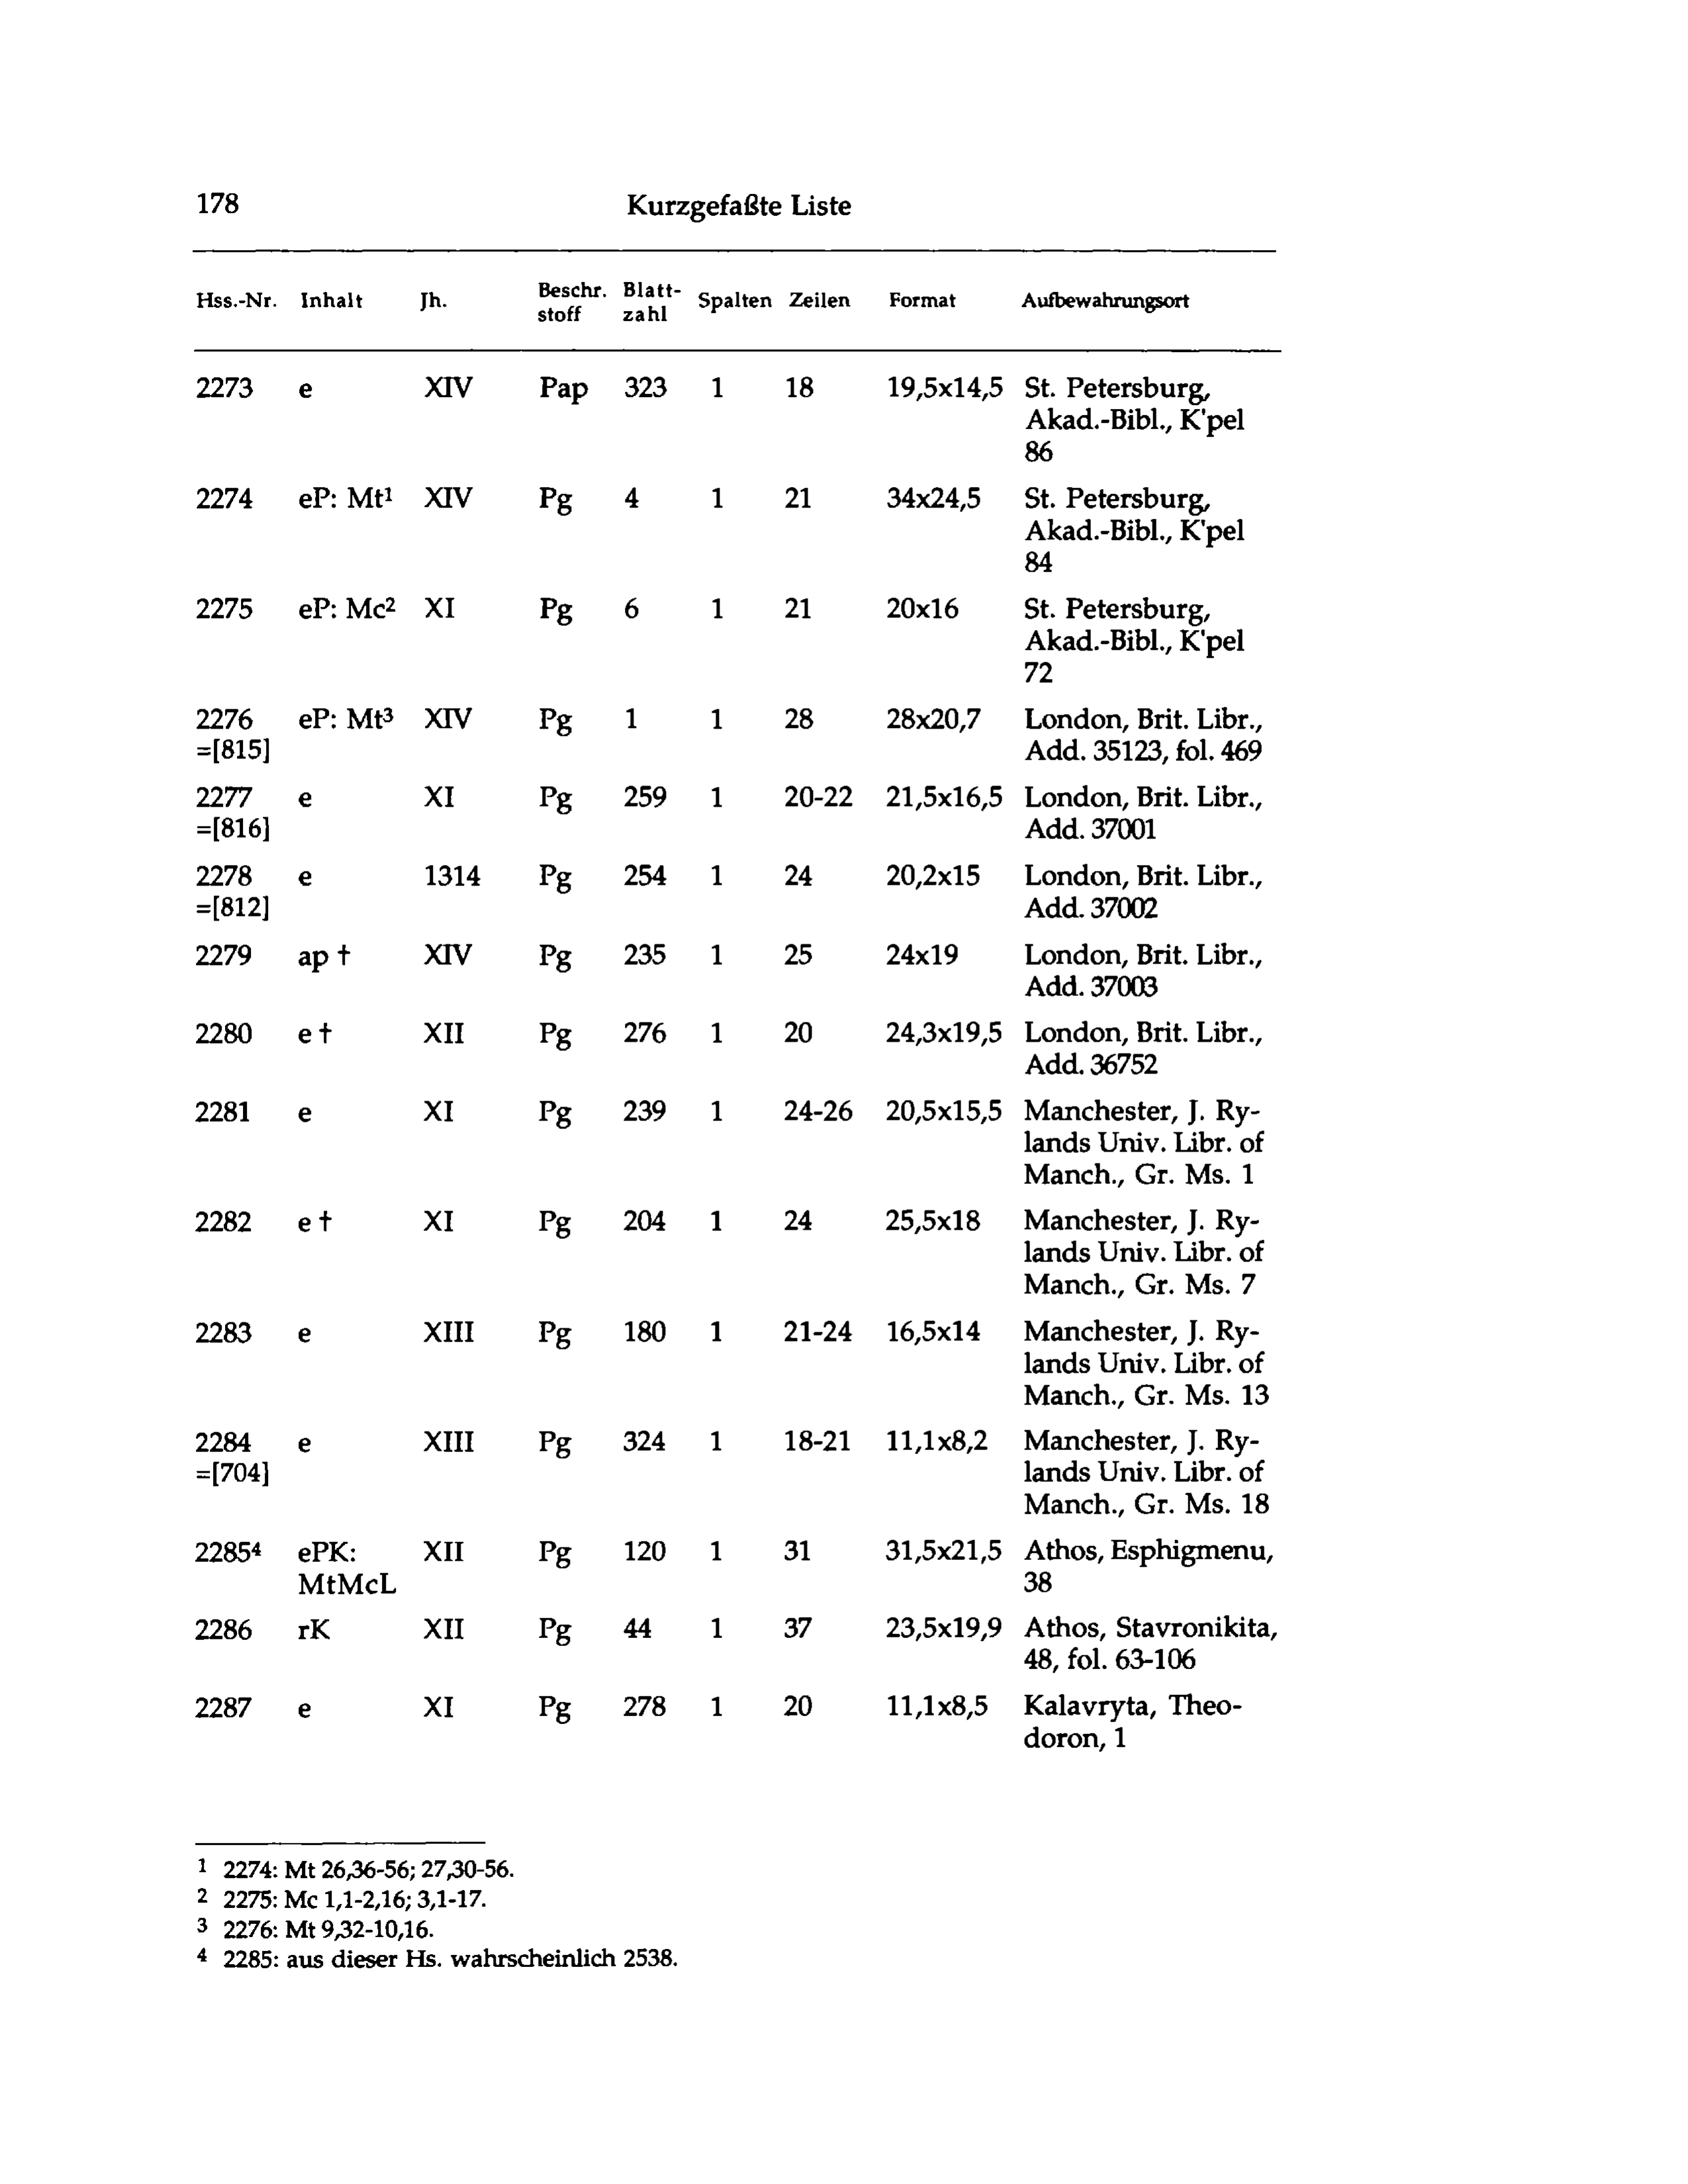 178 Kurzgefaßte Liste
Hss.-Nr. Inhalt Jh. Beschr. Blatt- Spalten Zeilen Format Aufbewahrungsort
stoff zahl
2273 e XIV Pap 323 1 18 19,5x14,5 St. Petersburg,
Akad.-Bibl., K'pel
86
2274 eP: Mt¹ XIV Pg 4 1 21 34x24,5 St. Petersburg,
Akad.-Bibl., K'pel
84
2275 eP: Mc² XI Pg 6 1 21 20x16 St. Petersburg,
Akad.-Bibl., K'pel
72
2276 eP: Mt³ XIV Pg 1 1 28 28x20,7 London, Brit. Libr.,
=[815] Add. 35123, fol. 469
2277 e XI Pg 259 1 20-22 21,5x16,5 London, Brit. Libr.,
=[816] Add. 37001
2278 e 1314 Pg 254 1 24 20,2x15 London, Brit. Libr.,
=[812] Add. 37002
2279 ap † XIV Pg 235 1 25 24x19 London, Brit. Libr.,
Add. 37003
2280 e † XII Pg 276 1 20 24,3x19,5 London, Brit. Libr.,
Add. 36752
2281 e XI Pg 239 1 24-26 20,5x15,5 Manchester, J. Ry-
lands Univ. Libr. of
Manch., Gr. Ms. 1
2282 e † XI Pg 204 1 24 25,5x18 Manchester, J. Ry-
lands Univ. Libr. of
Manch., Gr. Ms. 7
2283 e XIII Pg 180 1 21-24 16,5x14 Manchester, J. Ry-
lands Univ. Libr. of
Manch., Gr. Ms. 13
2284 e XIII Pg 324 1 18-21 11,1x8,2 Manchester, J. Ry-
=[704] lands Univ. Libr. of
Manch., Gr. Ms. 18
2285⁴ ePK: XII Pg 120 1 31 31,5x21,5 Athos, Esphigmenu,
MtMcL 38
2286 rK XII Pg 44 1 37 23,5x19,9 Athos, Stavronikita,
48, fol. 63-106
2287 e XI Pg 278 1 20 11,1x8,5 Kalavryta, Theo-
doron, 1
¹ 2274: Mt 26,36-56; 27,30-56.
² 2275: Mc 1,1-2,16; 3,1-17.
³ 2276: Mt 9,32-10,16.
⁴ 2285: aus dieser Hs. wahrscheinlich 2538.